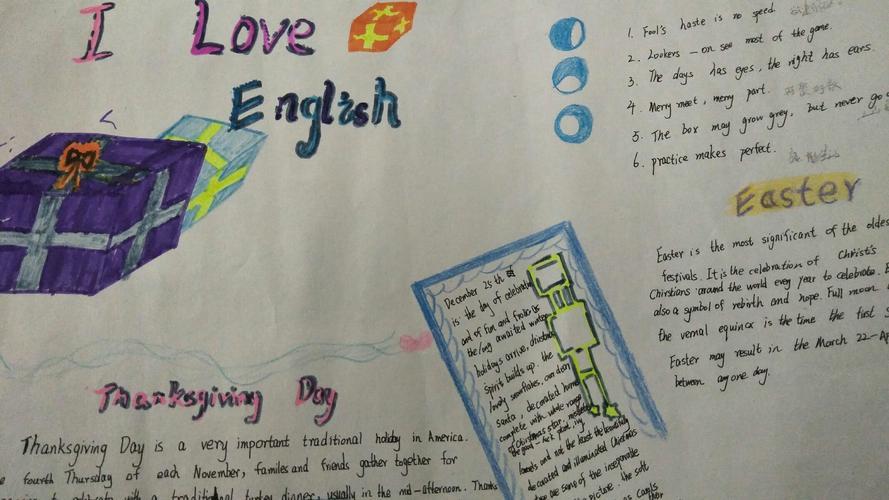 I Love
English
1. Fool's haste is no speed.
2. Lookers-on see most of the game.
3. The days has eyes, the night has ears.
4. Merry meet, merry part.
5. The box may grow grey, but never go
6. practice makes perfect.
Easter
Easter is the most significant of the
festivals. It is the celebration of Christ's
Chirstians around the world evey year to celebrate.
also a symbol of rebirth and hope. Full moon
the vernal equinox is the time the first
Easter may result in the March 22-
between any one day.
December 25th
is the day of
and of fun and frolic. As
the long awaited winter
holidays arrive, christmas
spirit builds up. the
lovely snowflakes, our dear
santa, decorated home
complete with whole range
Christmas star,
and not the least the beautifully
decorated and illuminated Christmas
are some of the inseparable
picture. the soft
Thanksgiving Day
Thanksgiving Day is a very important traditional holiday in America.
fourth Thursday of each November, familes and friends gather together for
with a traditional turkey dinner, usually in the mid-afternoon. Thanks